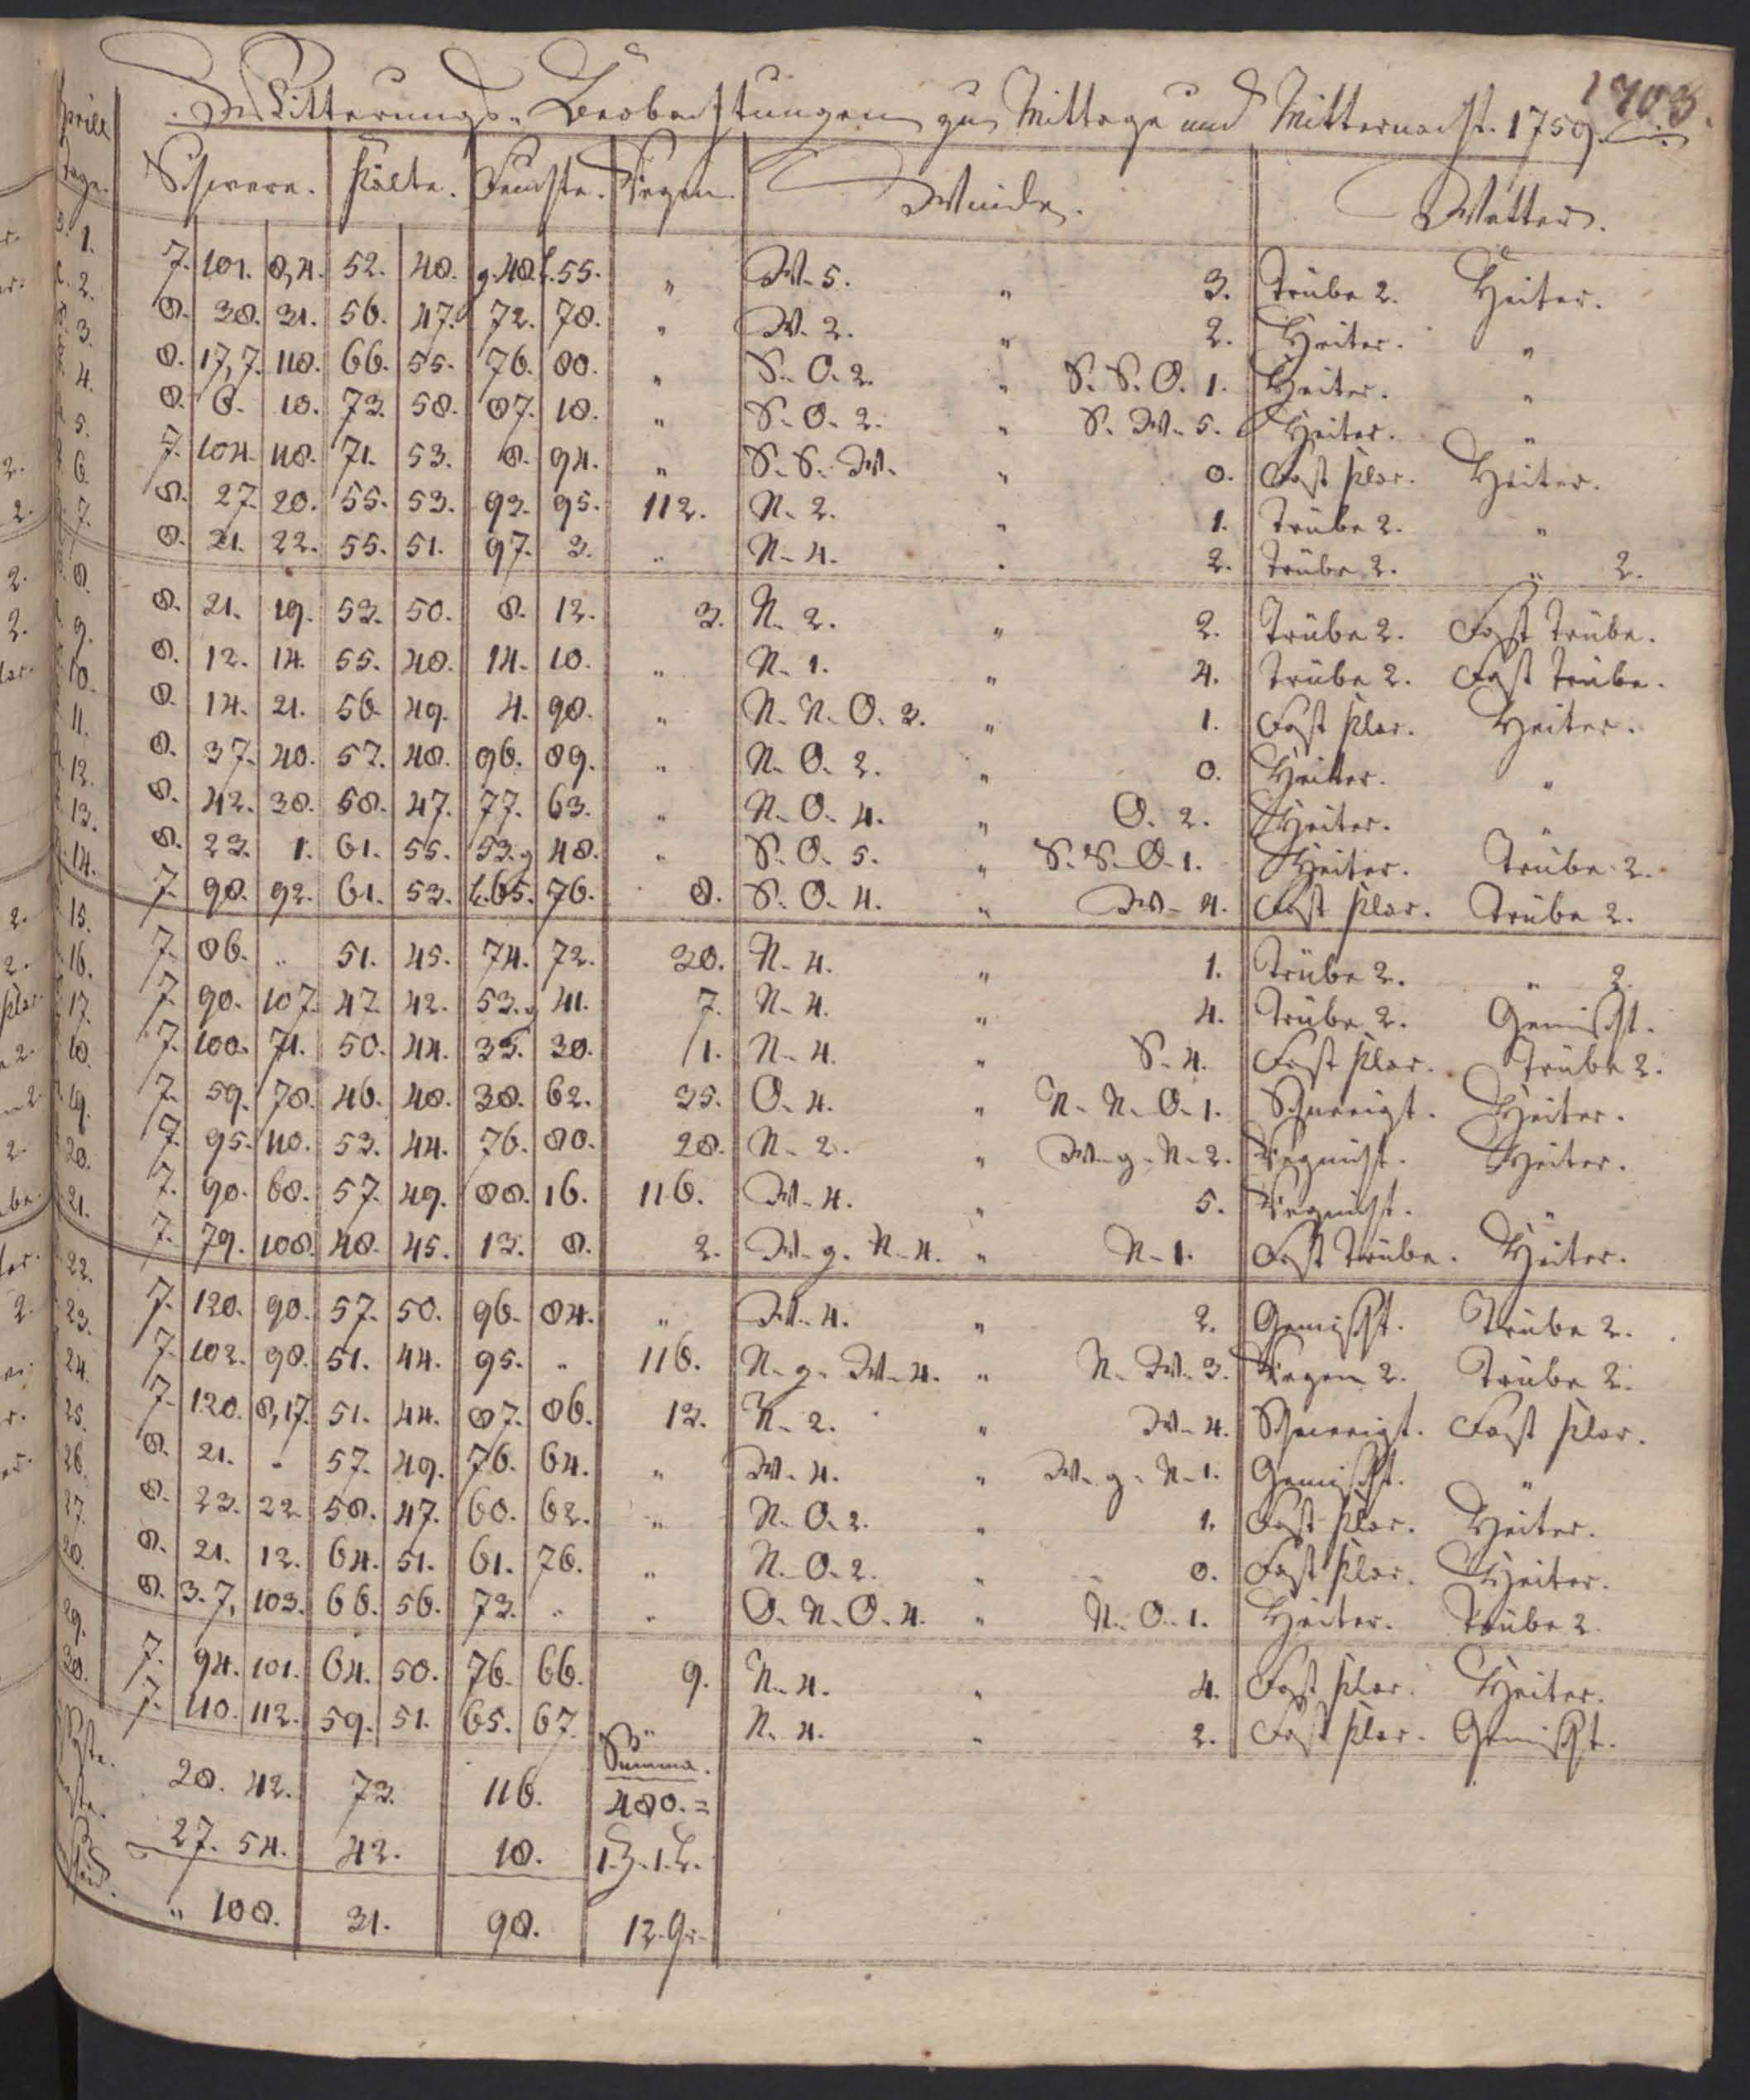 1703.
Witterungs-Beobachtungen zu Mittage und Mitternacht. 1759.
Aprill Tage. Schwere. Kälte. Feuchte. Regen. Winde. Wetter.
1. 7. 101. 8,4. 52. 48. g.48. l.55. " W. 5. " 3. Trübe 2. Heiter.
2. 8. 38. 31. 56. 47. 72. 78. " W. 2. " 2. Heiter. "
3. 8. 17,7. 118. 66. 55. 76. 80. " S. O. 2. " S. S. O. 1. Heiter. "
4. 8. 6. 18. 73. 58. 87. 18. " S. O. 2. " S. W. 5. Heiter. "
5. 7. 104. 118. 71. 53. 8. 94. " S. S. W. " 0. Fast klar. Heiter.
6. 8. 27. 20. 55. 53. 93. 95. 112. N. 2. " 1. Trübe 2. "
7. 8. 21. 22. 55. 51. 97. 3. " N. 4. " 2. Trübe 2. " 2.
8. 8. 21. 19. 53. 50. 8. 12. 3. N. 2. " 2. Trübe 2. Fast trübe.
9. 8. 12. 14. 55. 48. 14. 10. " N. 1. " 4. Trübe 2. Fast trübe.
10. 8. 14. 21. 56. 49. 4. 98. " N. N. O. 3. " 1. Fast klar. Heiter.
11. 8. 37. 40. 57. 48. 96. 89. " N. O. 2. " 0. Heiter. "
12. 8. 42. 38. 58. 47. 77. 63. " N. O. 4. " O. 2. Heiter. "
13. 8. 23. 1. 61. 55. 53. g 48. " S. O. 5. " S. S. O. 1. Heiter. Trübe 2.
14. 7. 98. 92. 61. 53. l.65. 76. 8. S. O. 4. " W. 4. Fast klar. Trübe 2.
15. 7. 86. " 51. 45. 74. 72. 38. N. 4. " 1. Trübe 2. " 2.
16. 7. 90. 107. 47. 42. 53. g 41. 7. N. 4. " 4. Trübe 2. Gemischt.
17. 7. 100. 71. 50. 44. 35. 30. 1. N. 4. " S. 4. Fast klar. Trübe 2.
18. 7. 59. 78. 46. 48. 38. 62. 35. O. 4. " N. N. O. 1. Schneeigt. Heiter.
19. 7. 95. 110. 53. 44. 76. 80. 28. N. 2. " W. g. N. 2. Regnicht. Heiter.
20. 7. 90. 68. 57. 49. 88. 16. 116. W. 4. " 5. Regnicht. "
21. 7. 79. 108. 48. 45. 13. 8. 2. W. g. N. 4. " N. 1. Fast trübe. Heiter.
22. 7. 120. 90. 57. 50. 96. 84. " W. 4. " 2. Gemischt. Trübe 2.
23. 7. 102. 98. 51. 44. 95. " 116. N. g. W. 4. " N. W. 3. Regen 2. Trübe 2.
24. 7. 120. 8,17. 51. 44. 87. 86. 12. N. 2. " W. 4. Schneeigt. Fast klar.
25. 8. 21. " 57. 49. 76. 64. " W. 4. " W. g. N. 1. Gemischt. "
26. 8. 23. 22. 58. 47. 60. 62. " N. O. 2. " 1. Fast klar. Heiter.
27. 8. 21. 12. 64. 51. 61. 76. " N. O. 2. " 0. Fast klar. Heiter.
28. 8. 3. 7, 103. 66. 56. 73. " " O. N. O. 4. " N. O. 1. Heiter. Trübe 2.
29. 7. 94. 101. 64. 50. 76. 66. 9. N. 4. " 4. Fast klar. Heiter.
30. 7. 110. 112. 59. 51. 65. 67. " N. 4. " 2. Fast klar. Gemischt.
Summa.
28. 42. 73. 116. 480. =
27. 54. 42. 18.
" 108. 31. 98. 12. Gr.